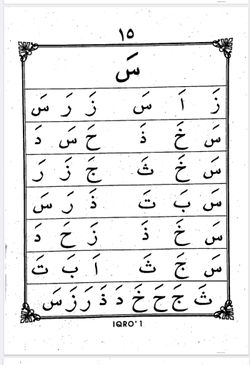 ١٥
سَ
زَ اَ سَ زَ رَ سَ
سَ خَ ذَ حَ سَ دَ
سَ خَ ثَ جَ زَ رَ
سَ بَ تَ ذَ رَ سَ
سَ خَ ذَ زَ حَ دَ
سَ جَ ثَ اَ بَ تَ
ثَ جَ حَ خَ دَ ذَ رَ زَ سَ
IQRO' 1